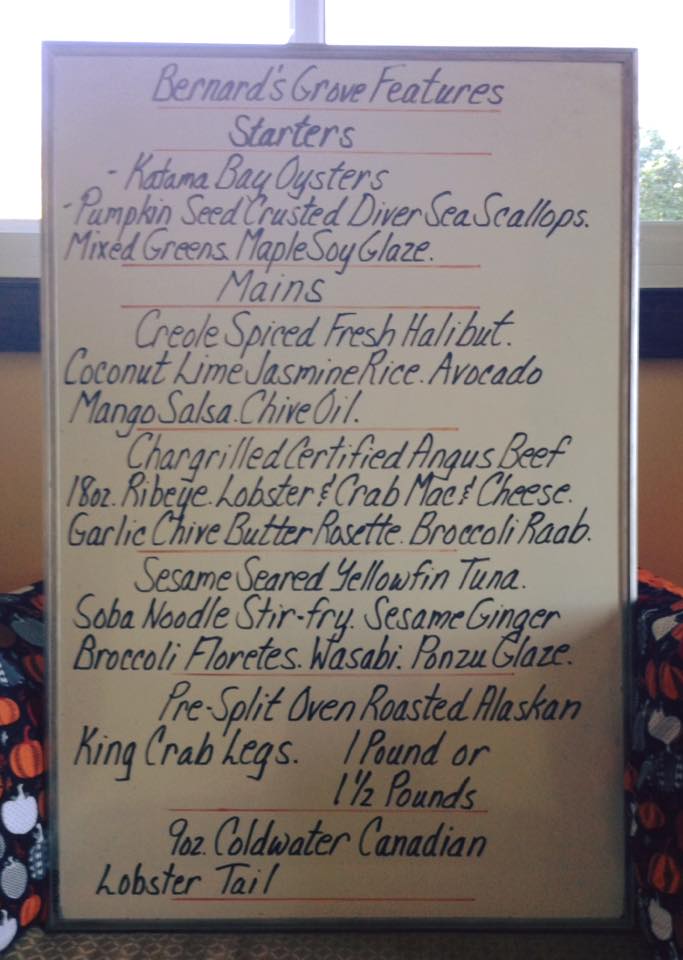 Bernard's Grove Features
Starters
- Katama Bay Oysters
- Pumpkin Seed Crusted Diver Sea Scallops.
Mixed Greens. Maple Soy Glaze.
Mains
Creole Spiced Fresh Halibut.
Coconut Lime Jasmine Rice. Avocado
Mango Salsa. Chive Oil.
Chargrilled Certified Angus Beef
18oz. Ribeye. Lobster & Crab Mac & Cheese.
Garlic Chive Butter Rosette. Broccoli Raab.
Sesame Seared Yellowfin Tuna.
Soba Noodle Stir-fry. Sesame Ginger
Broccoli Floretes. Wasabi. Ponzu Glaze.
Pre-Split Oven Roasted Alaskan
King Crab Legs. 1 Pound or
1 1/2 Pounds
9oz. Coldwater Canadian
Lobster Tail